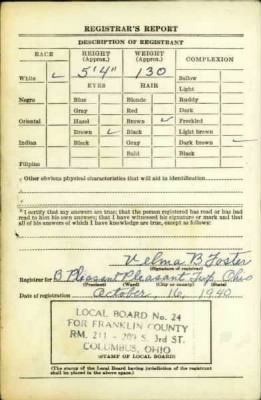 REGISTRAR'S REPORT
DESCRIPTION OF REGISTRANT
RACE HEIGHT (Approx.) WEIGHT (Approx.) COMPLEXION
White ✓ 5' 4" 130 Sallow
EYES HAIR Light
Negro Blue Blonde Ruddy
Gray Red Dark
Oriental Hazel Brown ✓ Freckled
Brown ✓ Black Light brown
Indian Black Gray Dark brown ✓
Bald Black
Filipino
Other obvious physical characteristics that will aid in identification
I certify that my answers are true; that the person registered has read or has had
read to him his own answers; that I have witnessed his signature or mark and that
all of his answers of which I have knowledge are true, except as follows:
Velma B Foster
(Signature of registrar)
Registrar for B Pleasant Pleasant Twp. Ohio
(Precinct) (Ward) (City or county) (State)
Date of registration October, 16, 1940
LOCAL BOARD No. 24
FOR FRANKLIN COUNTY
S. 3rd ST.
COLUMBUS, OHIO
(STAMP OF LOCAL BOARD)
(The stamp of the Local Board having jurisdiction of the registrant
shall be placed in the above space.)